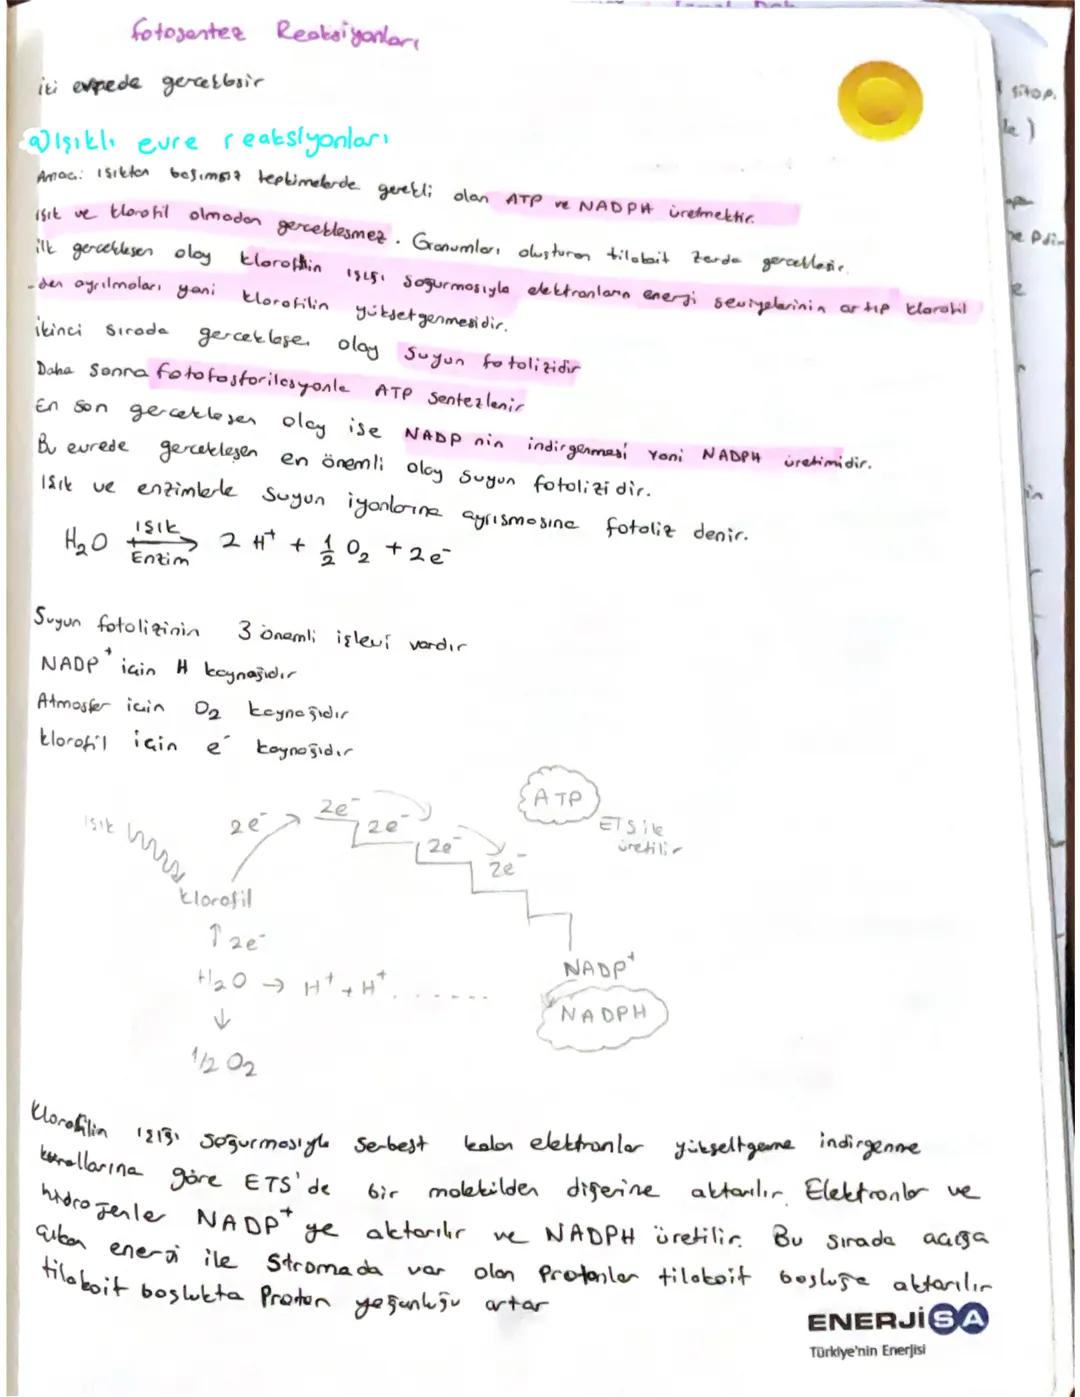 fotosentez Reaksiyonları
iki evrede gerçekleşir
a) Işıklı evre reaksiyonları
Amacı: ışıktan bağımsız tepkimelerde gerekli olan ATP ve NADPH üretmektir.
ışık ve klorofil olmadan gerçekleşmez. Granumları oluşturan tilakoit zarda gerçekleşir.
ilk gerçekleşen olay klorofilin ışığı soğurmasıyla elektronların enerji seviyelerinin artıp klorofil
-den ayrılmaları yani klorofilin yükseltgenmesidir.
ikinci sırada gerçekleşen olay suyun fotolizidir
Daha sonra fotofosforilasyonla ATP sentezlenir
En son gerçekleşen olay ise NADP nin indirgenmesi yani NADPH üretimidir.
Bu evrede gerçekleşen en önemli olay suyun fotolizi dir.
Işık ve enzimlerle suyun iyonlarına ayrışmasına fotoliz denir.
H₂O ışık Enzim → 2 H⁺ + 1/2 O₂ + 2e⁻
Suyun fotolizinin 3 önemli işlevi vardır
NADP⁺ için H kaynağıdır
Atmosfer için O₂ kaynağıdır
klorofil için e⁻ kaynağıdır
ışık
2e⁻
2e⁻
2e⁻
2e⁻
2e⁻
ATP
ETS ile
üretilir
klorofil
↑ 2e⁻
H₂O → H⁺ + H⁺ . . . . . .
NADP⁺
NADPH
↓
1/2 O₂
Klorofilin ışığı soğurmasıyla serbest kalan elektronlar yükseltgeme indirgenme
kurallarına göre ETS'de bir molekilden diğerine aktarılır. Elektronlar ve
hidrojenler NADP⁺ ye aktarılır ve NADPH üretilir. Bu sırada açığa
çıkan enerji ile stromada var olan Protonlar tilakoit boşluğa aktarılır
tilakoit boşlukta Proton yoğunluğu artar
ENERJİSA
Türkiye'nin Enerjisi